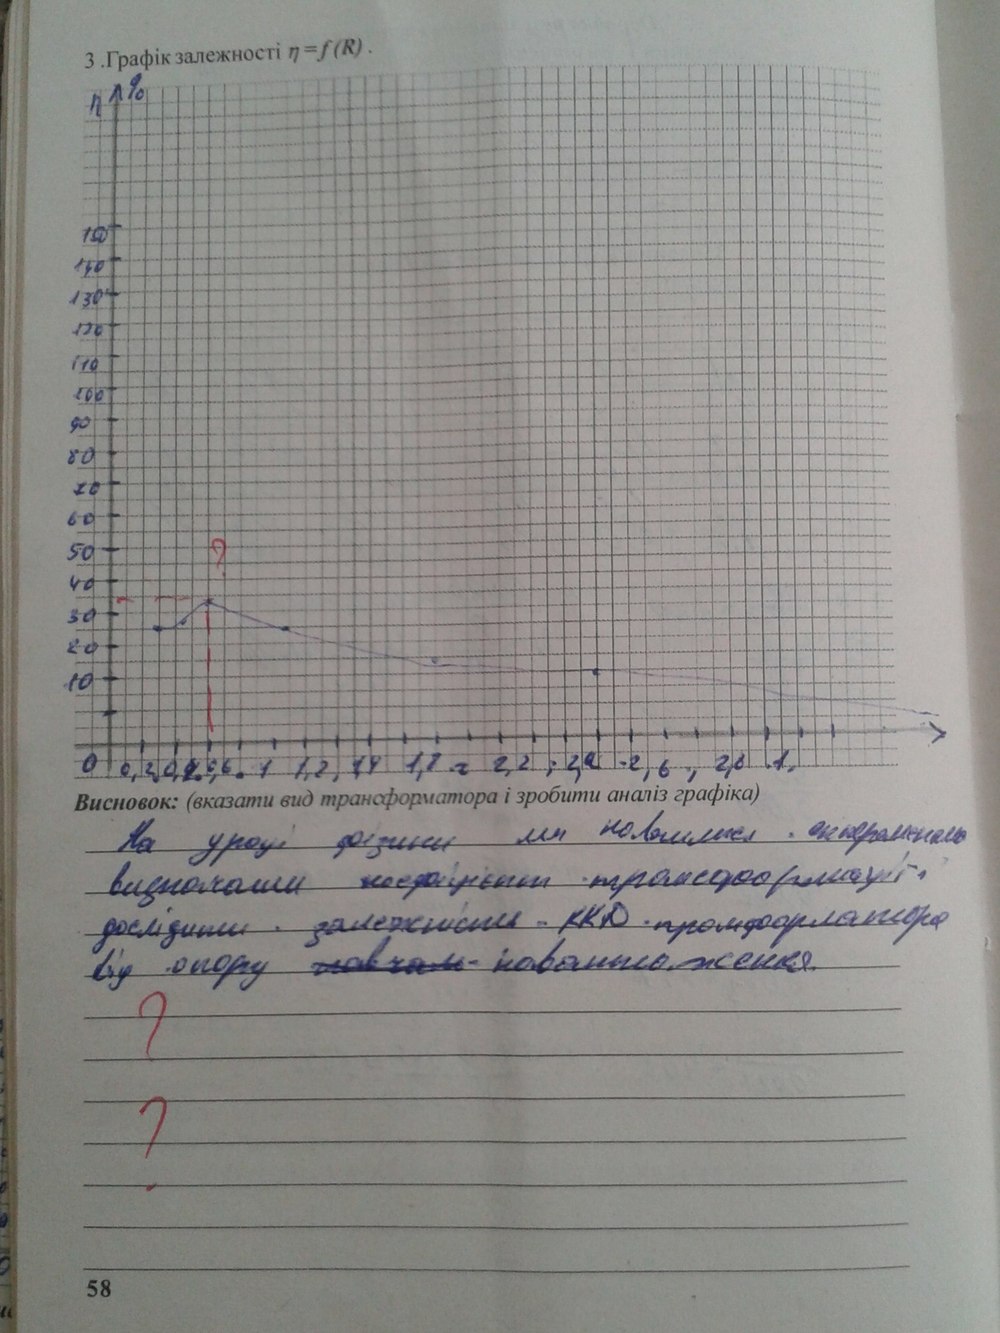 3 .Графік залежності η = f (R) .
η %
150
140
130
120
110
100
90
80
70
60
50
40
30
20
10
?
0 0,2 0,4 0,6 1 1,2 1,4 1,8 2 2,2 2,4 2,6 2,8
Висновок: (вказати вид трансформатора і зробити аналіз графіка)
На уроці фізики ми навчилися
визначати коефіцієнт трансформації і
дослідити залежність ККД трнсформатора
від опору навантаження.
?
?
58